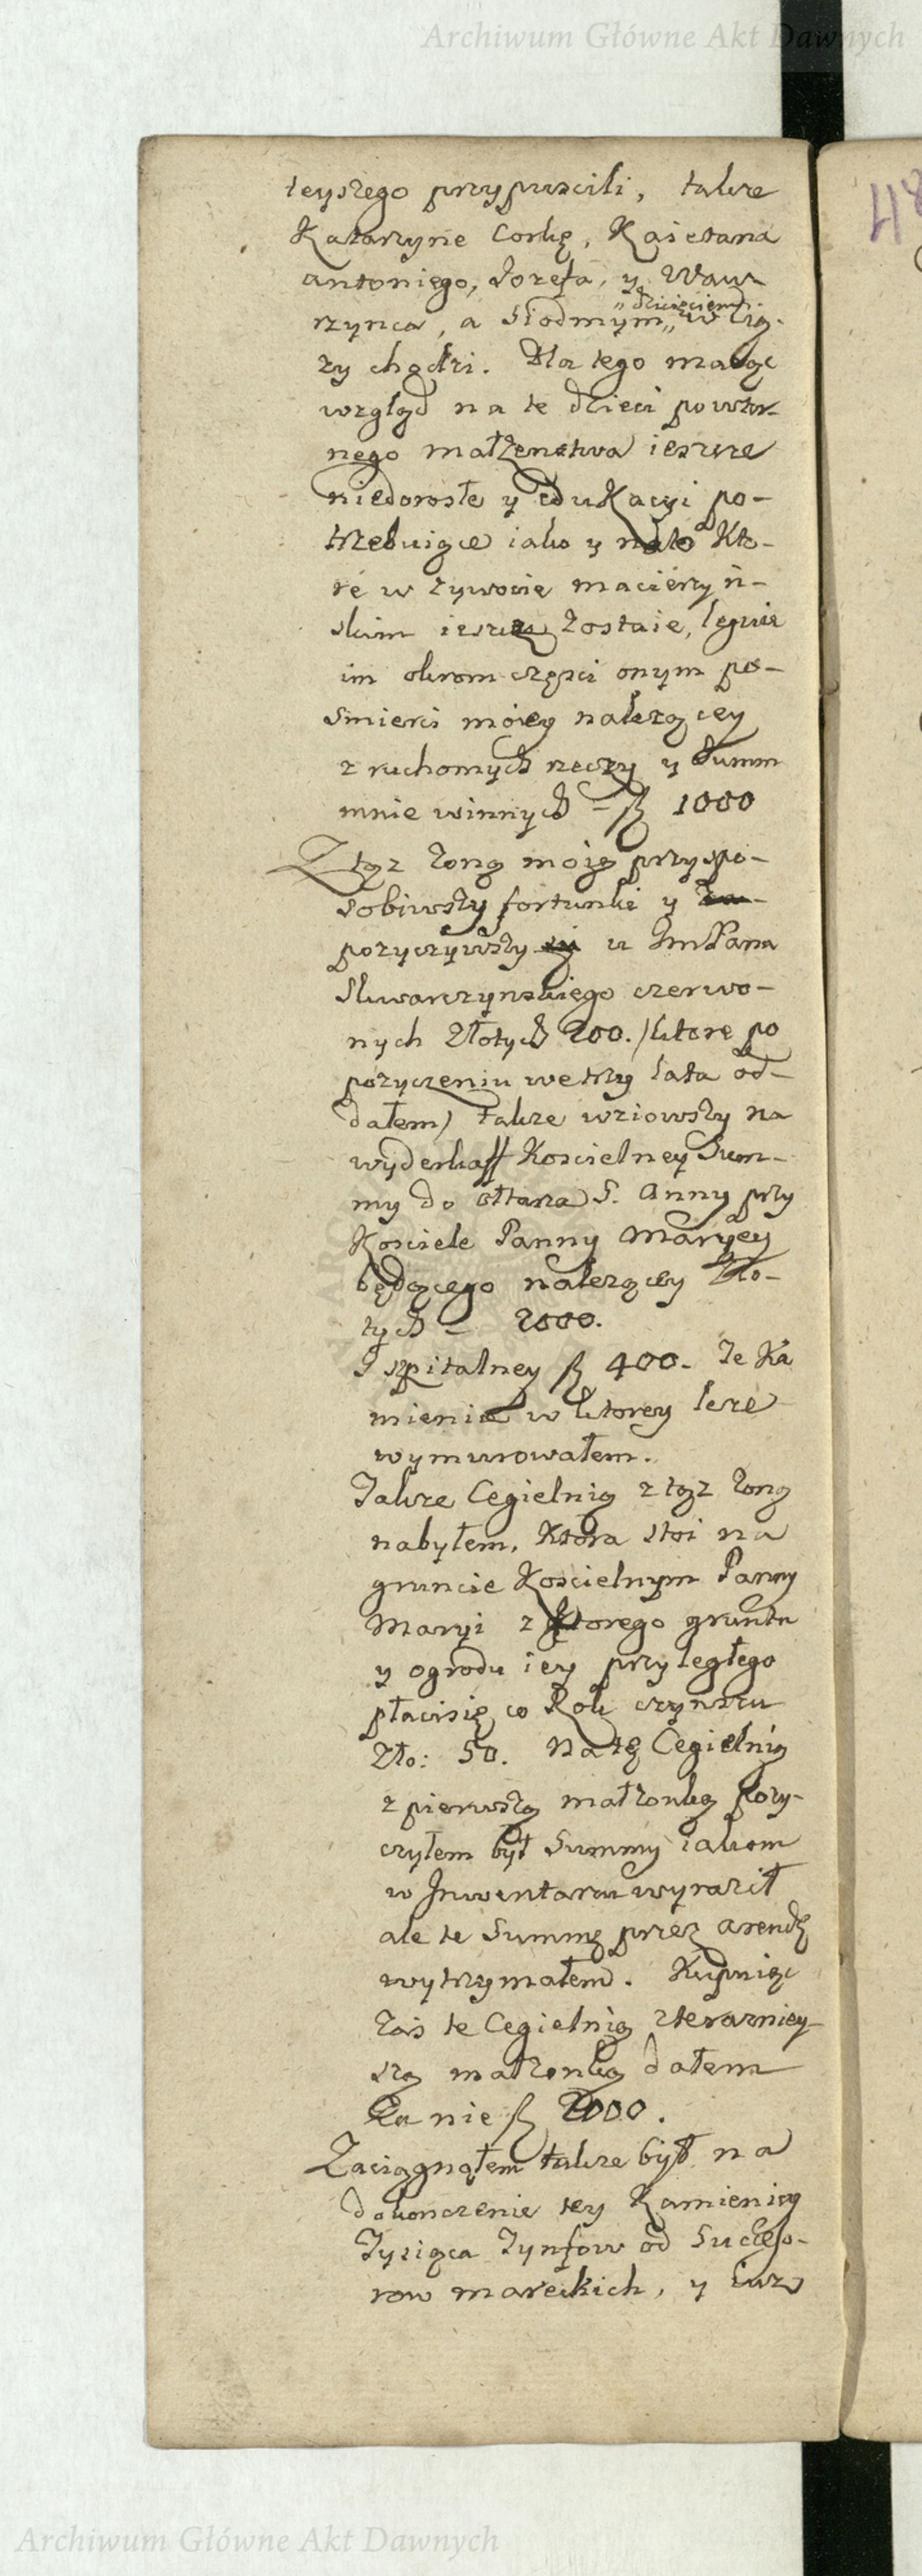 Archiwum Główne Akt Dawnych
48
teyszego przypuscili, takze
Katarzyne Corkę, Kaietana
antoniego, Jozefa, y Waw
rzynca, a siodmym „dziecięciem„ w cią-
zy chodzi. Dla tego maiąc
wzgląd na te dzieci powtor-
nego małżenstwa ieszcze
niedorosłe y edukacyi po-
trzebuiące iako y na to Kto-
re w zywocie macierzyń-
skim ieszcze zostaie, leguie
im okrom części onym po-
smierci moiey nalezącey
z ruchomych rzeczy y Summ
mnie winnych – fl 1000
Z tąz zoną moią przyspo-
sobiwszy fortunki y
pozyczywszy u ImPana
Skwarczynskiego czerwo-
nych Złotych 200. /ktore po
pozyczeniu we trzy lata od-
dałem/ takze wziowszy na
wyderkaff Koscielney Sum-
my do ołtarza S. Anny przy
Kosciele Panny Maryey
będącego nalezącey Zło-
tych – 2000.
I szpitalney fl 400. Te Ka
mienice w ktorey leze
wymurowałem.
Takze Cegielnią z tąz zoną
nabyłem, Ktora stoi na
gruncie Koscielnym Panny
Maryi z Ktorego gruntu
y ogrodu iey przyległego
płacisię co Rok czynszu
Zło: 50. Na tę Cegielnią
z pierwszą małzonką pozy-
czyłem był Summy iakom
w Inwentarzu wyraził
ale te Summę przez arendę
wytrzymałem. Kupuiąc
zas te Cegielnią z terazniey-
szą małzonką dałem
Za nie fl 2000.
Zaciągnąłem takze był na
dokonczenie tey Kamienicy
Tysiąca Tynfow od Succeso-
row mareckich, y iuz
Archiwum Główne Akt Dawnych